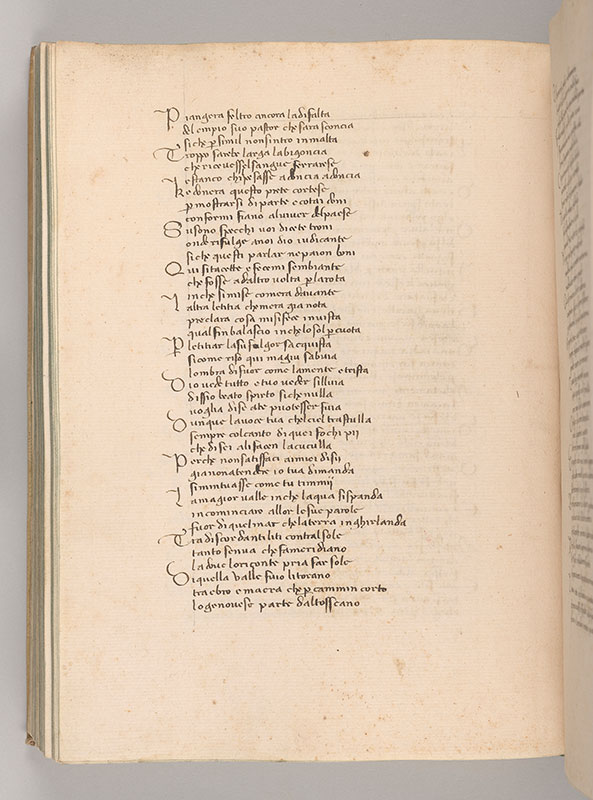 Piangera feltro ancora la difalta
del empio suo pastor che sara sconcia
si che p simil non sintro in malta
Troppo sarebe larga la bigoncia
che ricevesse l sangue ferrarese
e stanco chi l pesasse a doncia a doncia
Ke donera questo prete cortese
p mostrarsi di parte e cotai doni
conformi fiano al viver del paese
Su sono specchi voi dicete troni
onde rifulge a noi dio iudicante
si che questi parlar ne paion boni
Qui si tacette e fecemi sembiante
che fosse ad altro volta p la rota
in che si mise comera davante
L altra letitia che mera gia nota
preclara cosa mi si fece in vista
qual fin balascio in che lo sol pcuota
P letitiar la su fulgor sacquista
si come riso qui ma giu sabuia
lombra di fuor come la mente e trista
Dio vede tutto e tuo veder silluia
dissio beato spirto si che nulla
voglia di se a te puotesser fuia
Dunque la voce tua chel ciel trastulla
sempre col canto di quei fochi pii
che di sei ali facen la cuculla
Perche non satisfaci ai miei disii
gia non atendere io tua dimanda
si mintuasse come tu timmii
La magior valle in che laqua si spanda
incominciaro allor le sue parole
fuor di quel mar che la terra inghirlanda
Tra discordanti liti contral sole
tanto senva che fa meridiano
la dove lorizonte pria far sole
Di quella valle fuio litorano
tra ebro e macra che p cammin corto
lo genovese parte dal tosscano